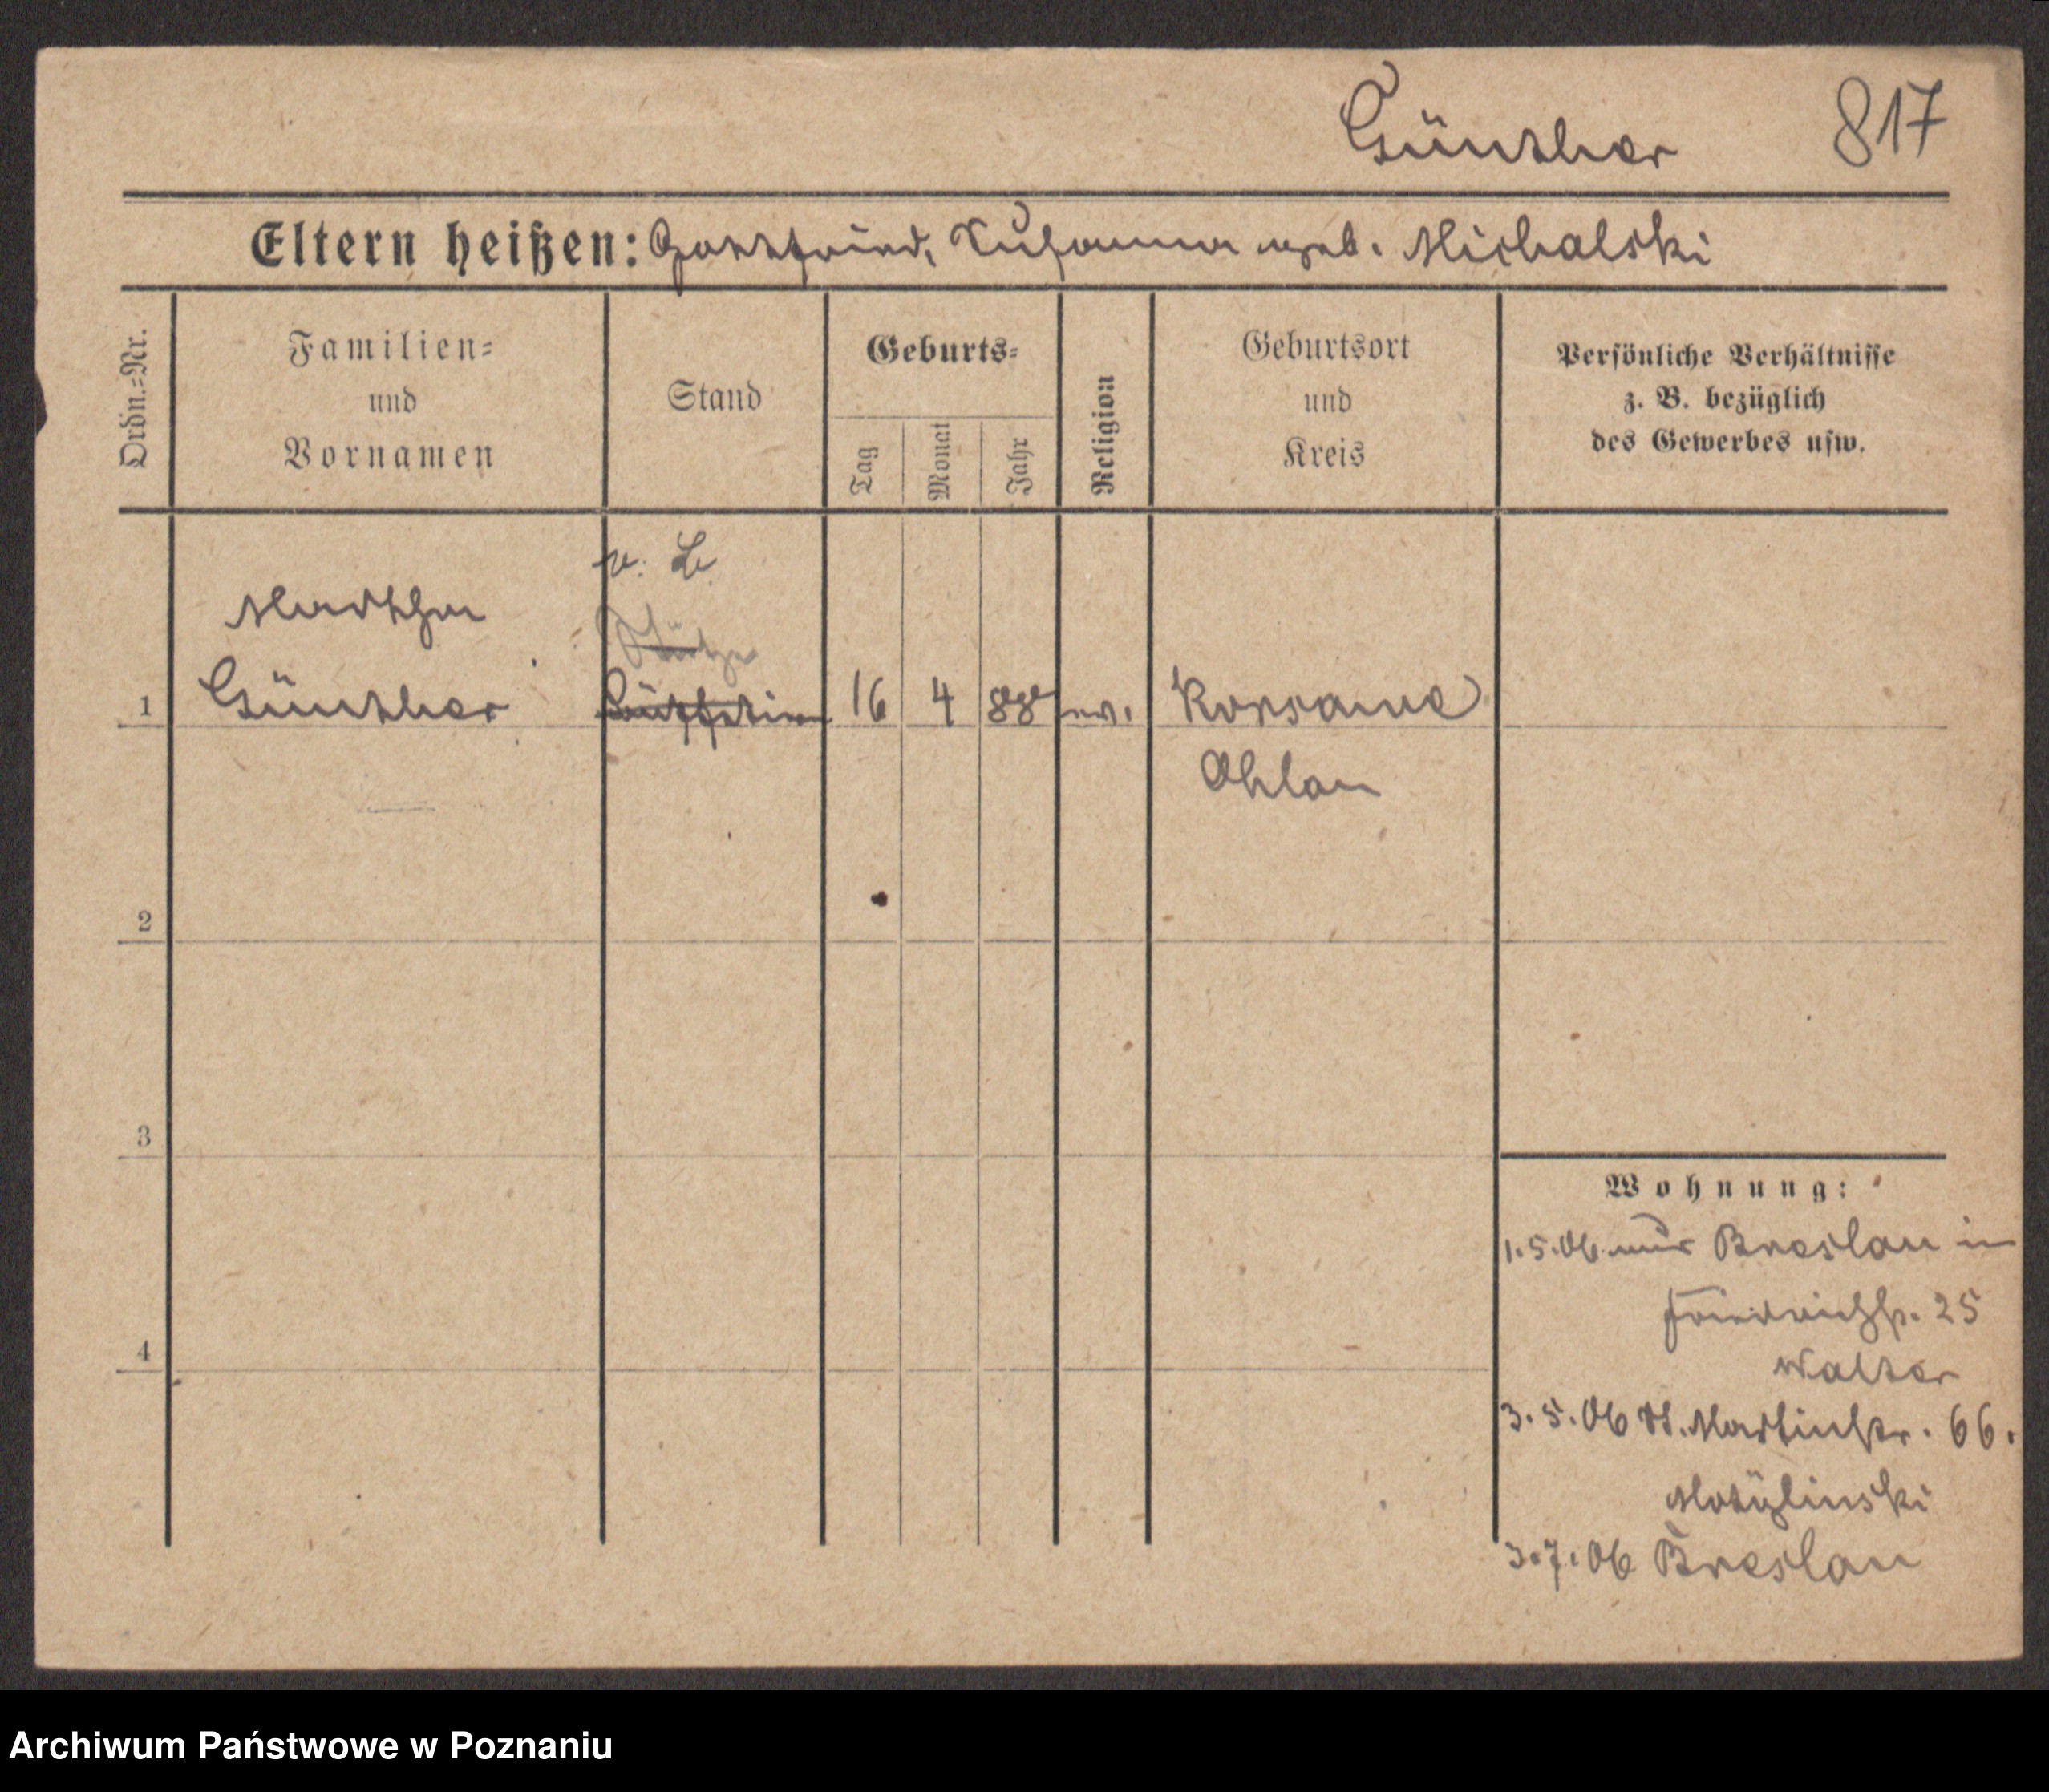 Günther 817
Eltern heißen: Gottfried, Susanna geb. Michalski
Ordn.-Nr.
Familien-
und
Vornamen
Stand
Geburts-
Tag
Monat
Jahr
Religion
Geburtsort
und
Kreis
Persönliche Verhältnisse
z. B. bezüglich
des Gewerbes usw.
Martha
Stütze
1 Günther 16 4 88 ev.
Ohlau
2
3
4
Wohnung:
1.5.06 aus Breslau in
Friedrichstr. 25
Walter
3.5.06 St. Martinstr. 66.
Motylinski
3.7.06 Breslau
Archiwum Państwowe w Poznaniu